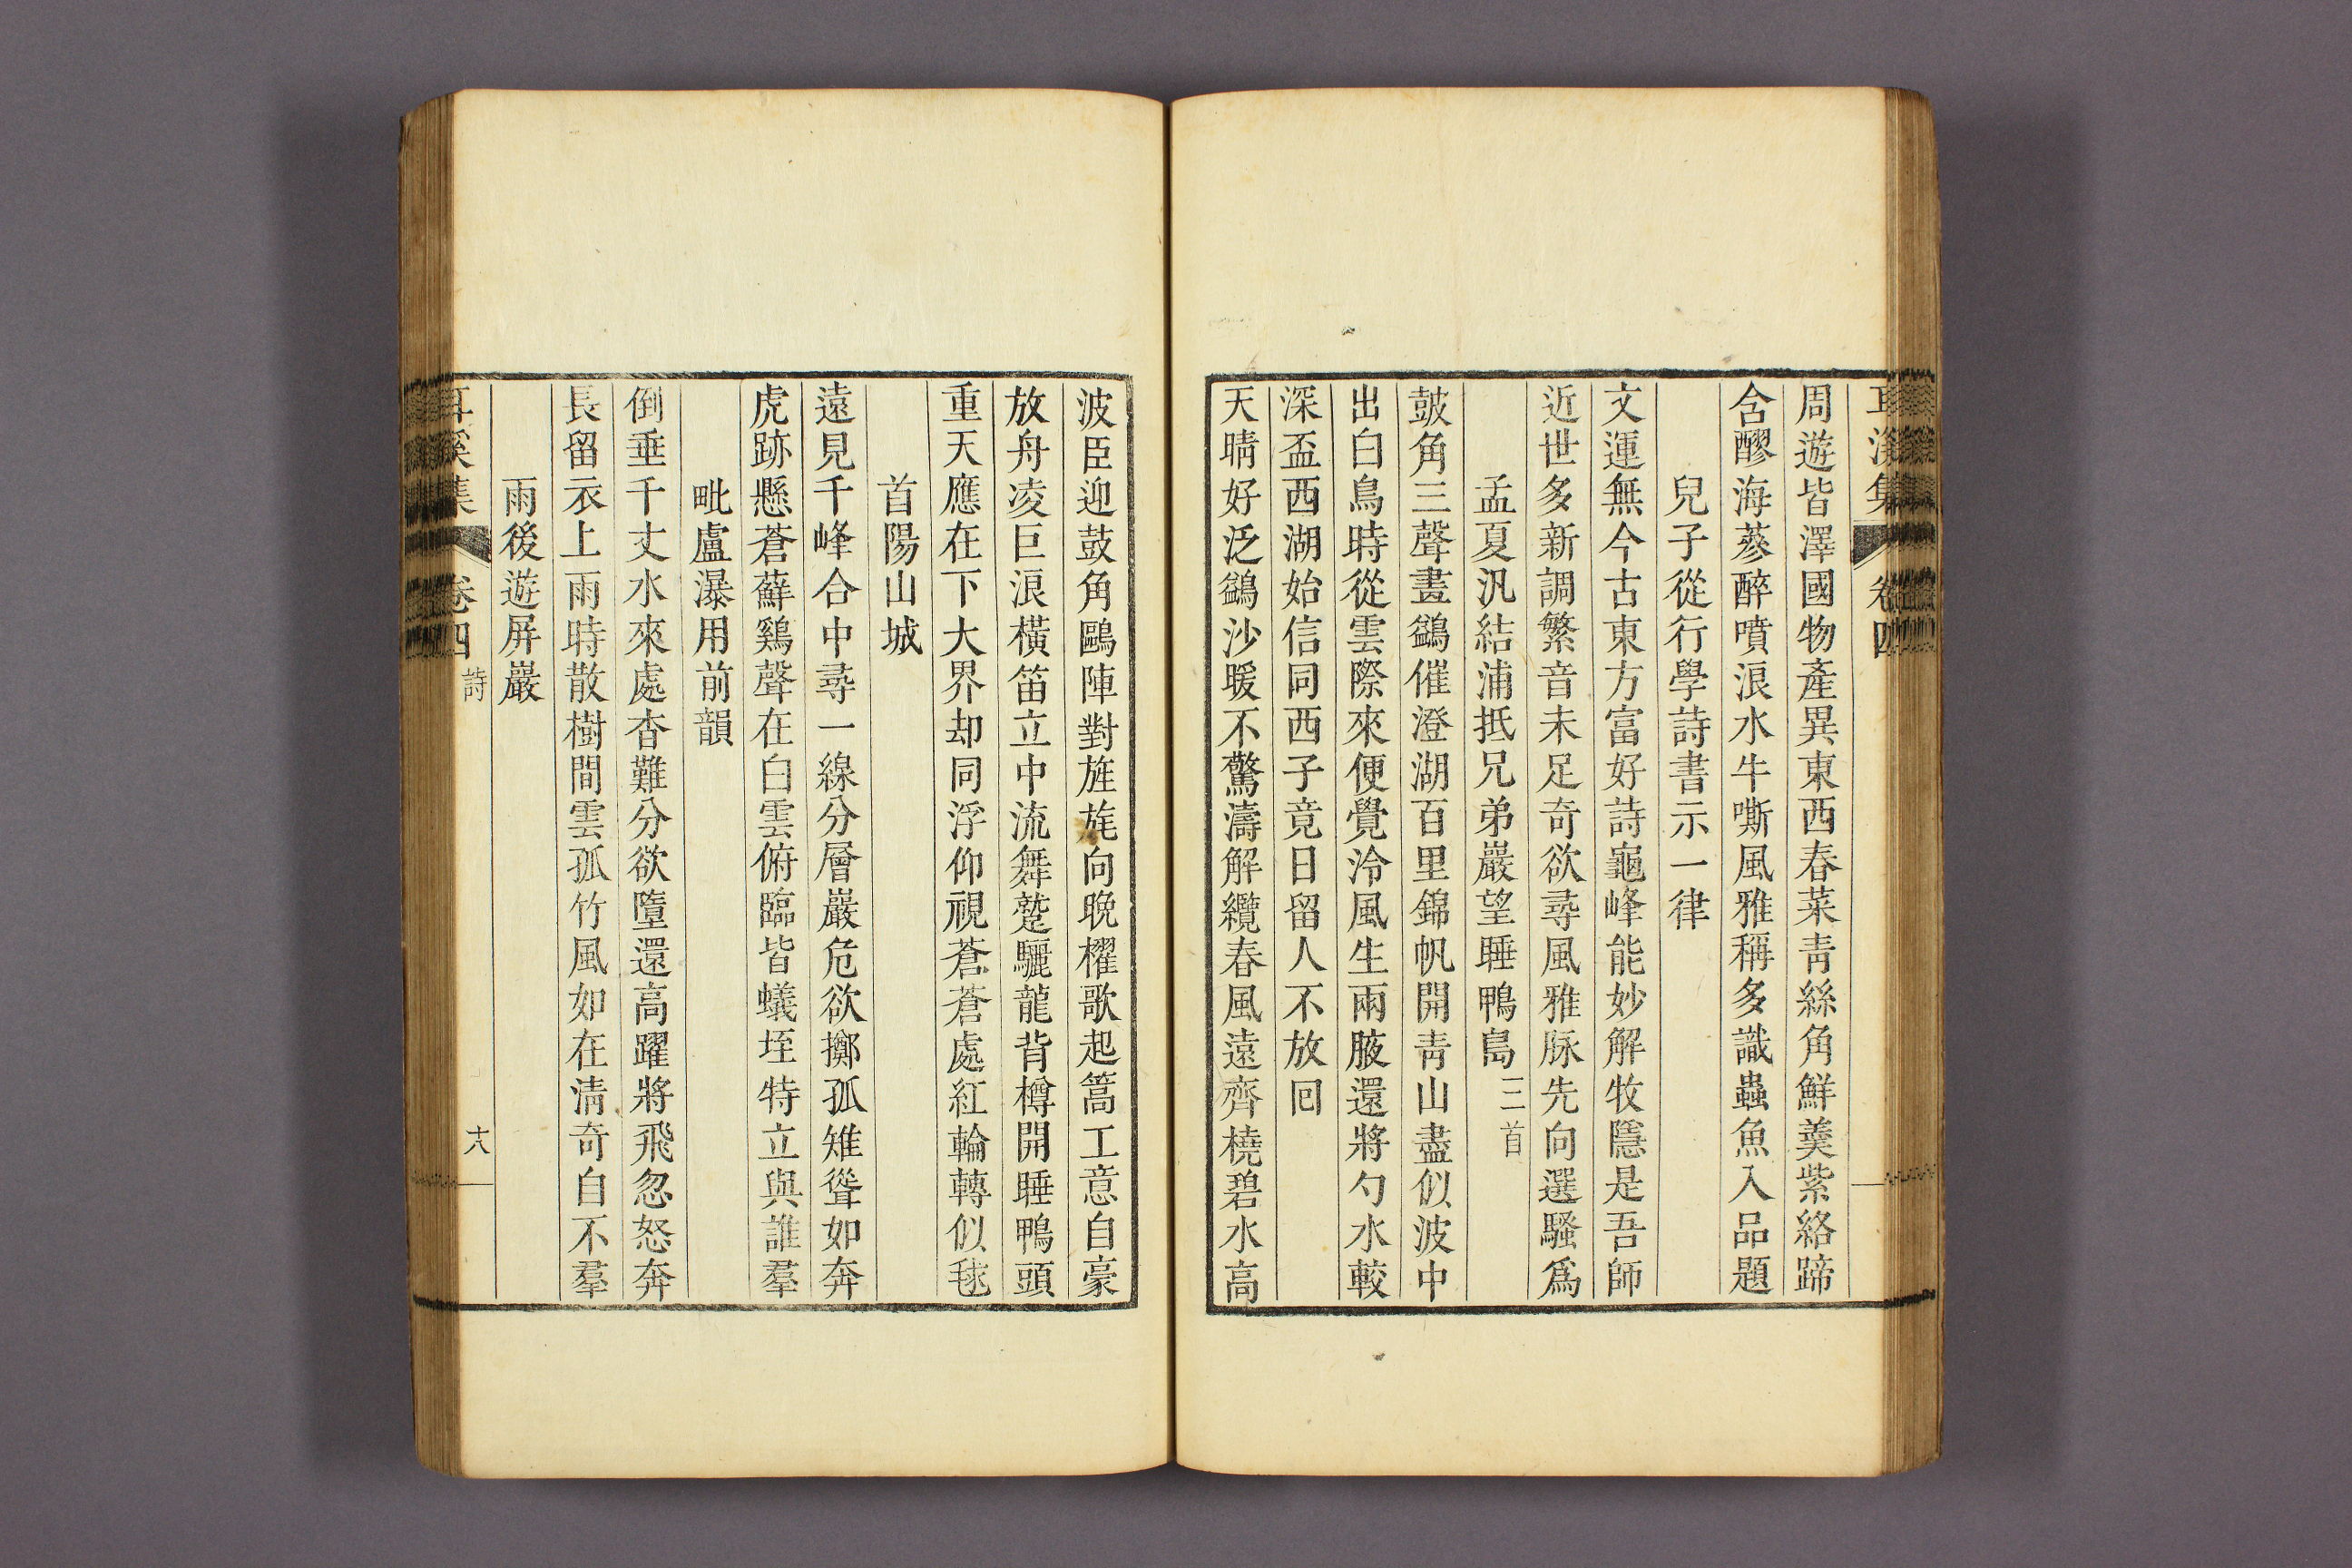 周遊皆澤國物產異東西春菜靑絲角鮮羹紫絡蹄
含醪海蔘醉噴浪水牛嘶風雅稱多識蟲魚入品題
兒子從行學詩書示一律
文運無今古東方富好詩龜峰能妙解牧隱是吾師
近世多新調繁音未足奇欲尋風雅脉先向選騷爲
孟夏汎結浦抵兄弟巖望睡鴨島 三首
皷角三聲畫鷁催澄湖百里錦帆開靑山盡似波中
出白鳥時從雲際來便覺泠風生兩腋還將勺水較
深盃西湖始信同西子竟日留人不放回
天晴好泛鷁沙暖不驚濤解纜春風遠齊橈碧水高
波臣迎鼓角鷗陣對旌旄向晚櫂歌起篙工意自豪
放舟凌巨浪橫笛立中流舞躄驪龍背樽開睡鴨頭
重天應在下大界却同浮仰視蒼蒼處紅輪轉似毬
首陽山城
遠見千峰合中尋一線分層巖危欲擲孤雉聳如奔
虎跡懸蒼蘚鷄聲在白雲俯臨皆蟻垤特立與誰羣
毗盧瀑用前韻
倒垂千丈水來處杳難分欲墮還高躍將飛忽怒奔
長留衣上雨時散樹間雲孤竹風如在淸奇自不羣
雨後遊屛巖
耳溪集 卷四 詩 十八